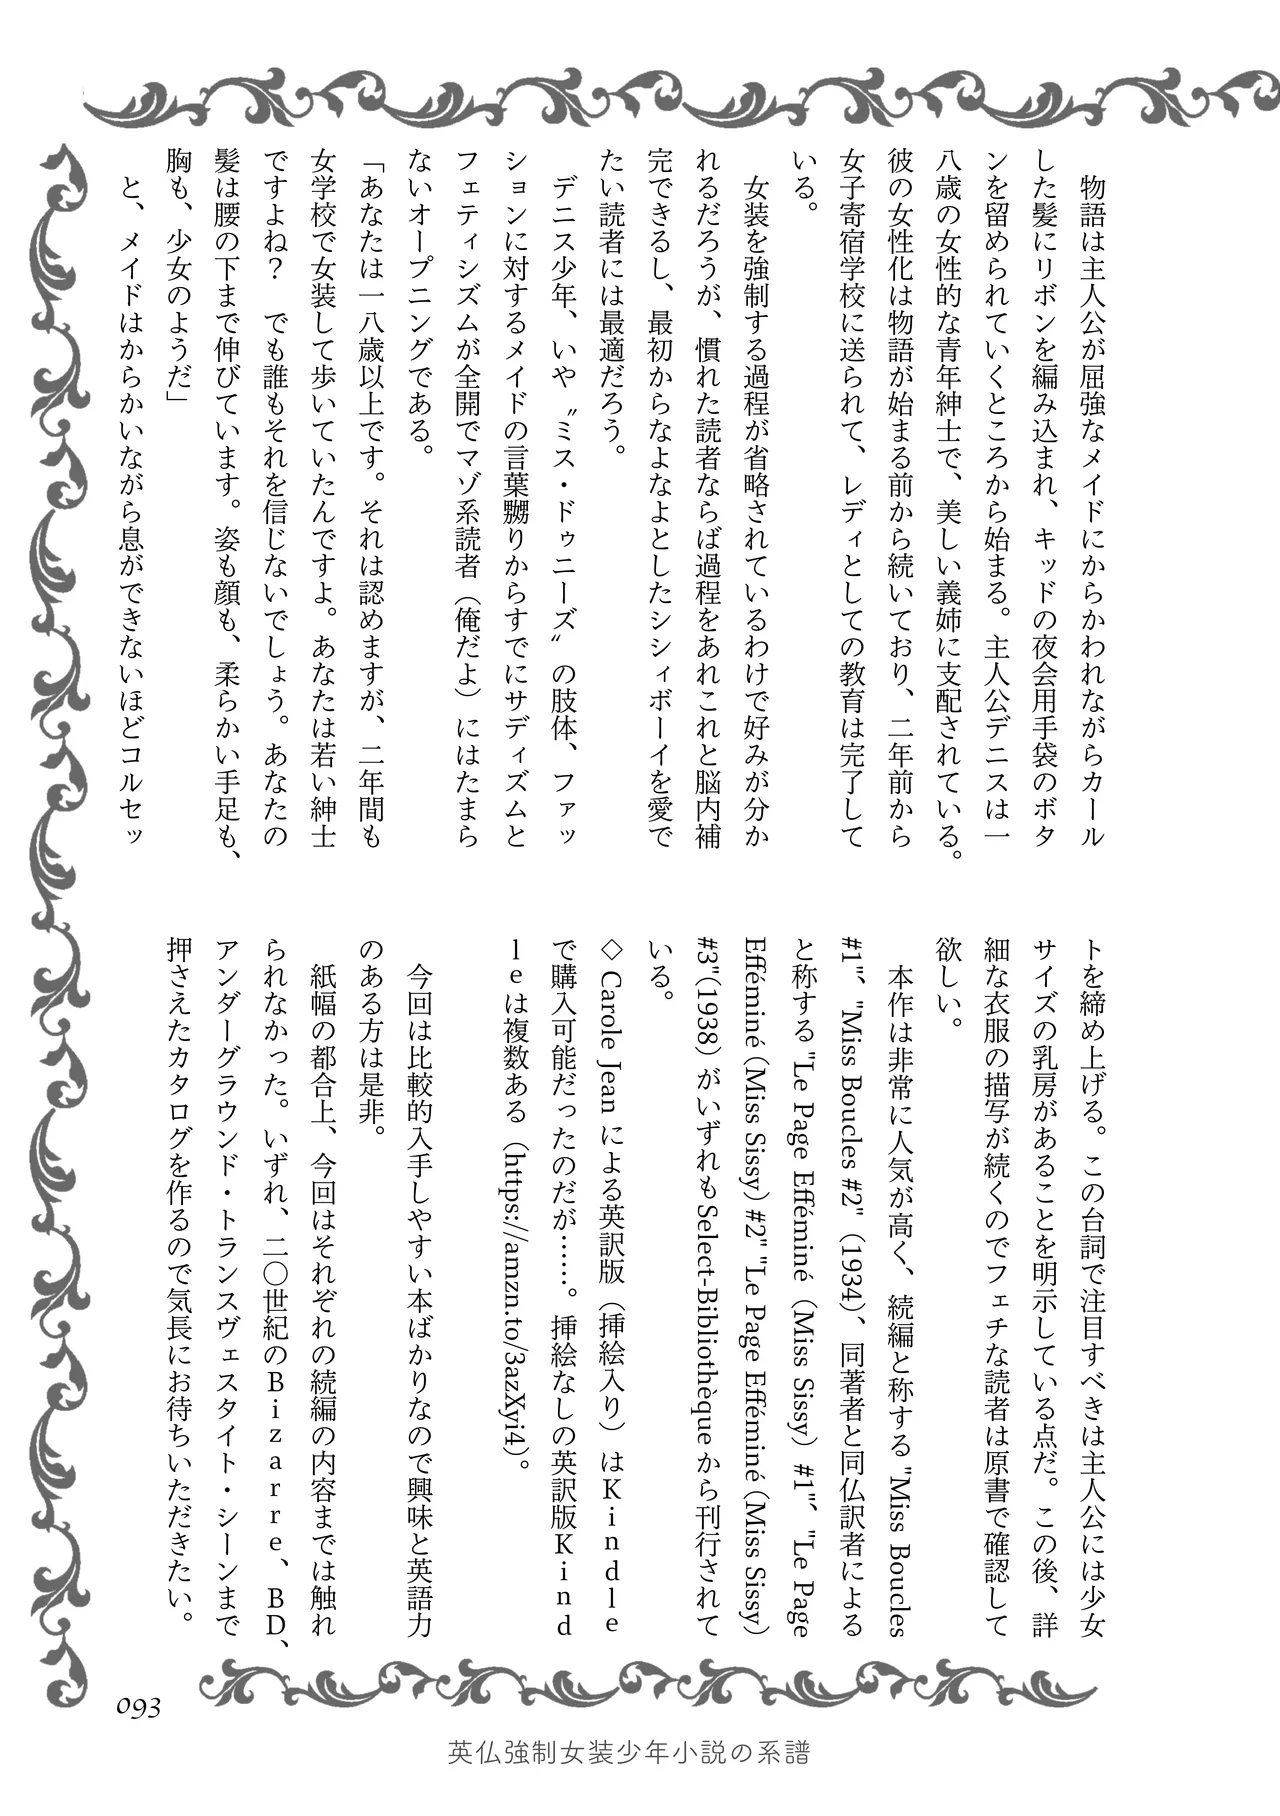 物語は主人公が屈強なメイドにからかわれながらカール
した髪にリボンを編み込まれ、キッドの夜会用手袋のボタ
ンを留められていくところから始まる。主人公デニスは一
八歳の女性的な青年紳士で、美しい義姉に支配されている。
彼の女性化は物語が始まる前から続いており、二年前から
女子寄宿学校に送られて、レディとしての教育は完了して
いる。
　女装を強制する過程が省略されているわけで好みが分か
れるだろうが、慣れた読者ならば過程をあれこれと脳内補
完できるし、最初からなよなよとしたシシィボーイを愛で
たい読者には最適だろう。
　デニス少年、いや〝ミス・ドゥニーズ〟の肢体、ファッ
ションに対するメイドの言葉嬲りからすでにサディズムと
フェティシズムが全開でマゾ系読者（俺だよ）にはたまら
ないオープニングである。
「あなたは一八歳以上です。それは認めますが、二年間も
女学校で女装して歩いていたんですよ。あなたは若い紳士
ですよね？　でも誰もそれを信じないでしょう。あなたの
髪は腰の下まで伸びています。姿も顔も、柔らかい手足も、
胸も、少女のようだ」
　と、メイドはからかいながら息ができないほどコルセッ
トを締め上げる。この台詞で注目すべきは主人公には少女
サイズの乳房があることを明示している点だ。この後、詳
細な衣服の描写が続くのでフェチな読者は原書で確認して
欲しい。
　本作は非常に人気が高く、続編と称する "Miss Boucles
#1"、"Miss Boucles #2"（1934）、同著者と同仏訳者による
と称する "Le Page Efféminé（Miss Sissy）#1"、"Le Page
Efféminé（Miss Sissy）#2" "Le Page Efféminé（Miss Sissy）
#3"（1938）がいずれも Select-Bibliothèque から刊行されて
いる。
◇ Carole Jean による英訳版（挿絵入り）はＫｉｎｄｌｅ
で購入可能だったのだが……。挿絵なしの英訳版Ｋｉｎｄ
ｌｅは複数ある（https://amzn.to/3azXyi4）。
　今回は比較的入手しやすい本ばかりなので興味と英語力
のある方は是非。
　紙幅の都合上、今回はそれぞれの続編の内容までは触れ
られなかった。いずれ、二〇世紀のＢｉｚａｒｒｅ、ＢＤ、
アンダーグラウンド・トランスヴェスタイト・シーンまで
押さえたカタログを作るので気長にお待ちいただきたい。
093
英仏強制女装少年小説の系譜